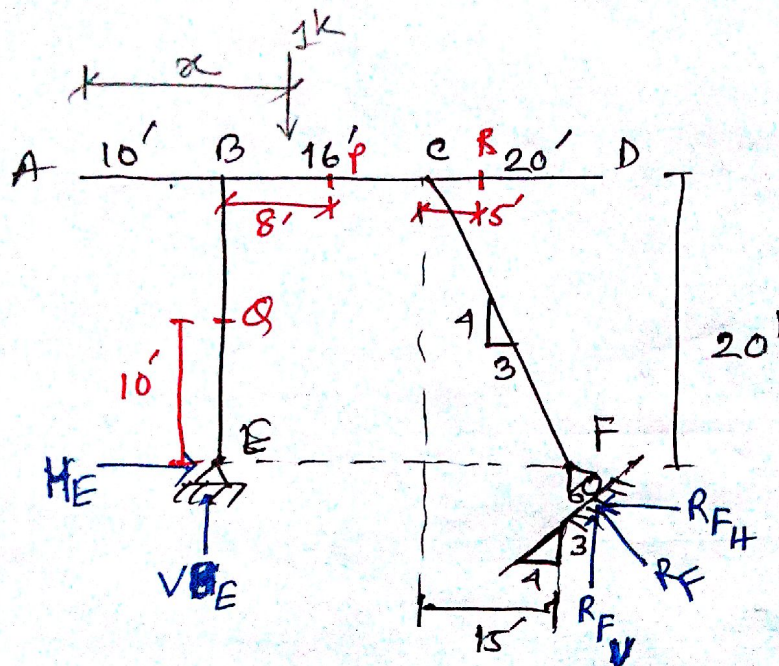 1k
x
A 10' B 16' P C R 20' D
8' 5'
Q
4
3
20'
10'
E F
H_E
R_FH
3
4
R_F
V_E
R_FV
15'